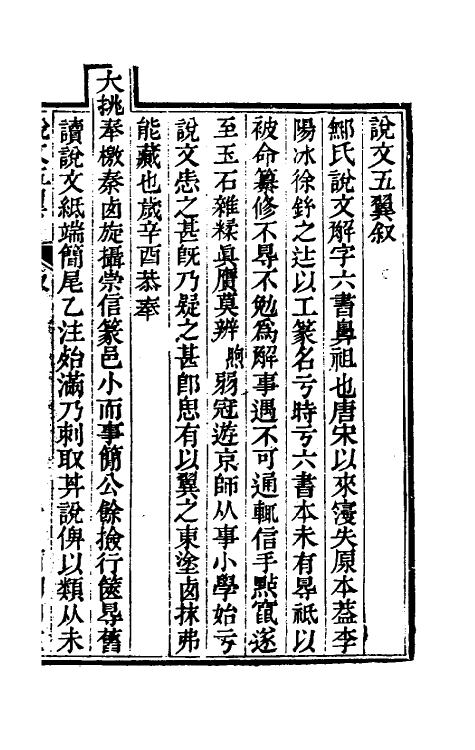 說文五翼叙
鄦氏說文解字六書鼻祖也唐宋以來寖失原本葢李
陽冰徐鉉之㳒以工篆名亏時亏六書本未有㝵祇以
被命纂修不㝵不勉為解事遇不可通輒信手㸃竄遂
至玉石雜糅眞贋莫辨煦弱冠遊京師从事小學始亏
說文恚之甚旣乃疑之甚卽思有以翼之東塗鹵抹弗
能藏也歲辛酉恭奉
大挑奉檄秦鹵旋攝崇信篆邑小而事簡公餘撿行篋㝵舊
讀說文紙端簡尾乙注始滿乃刺取其說俾以類从未